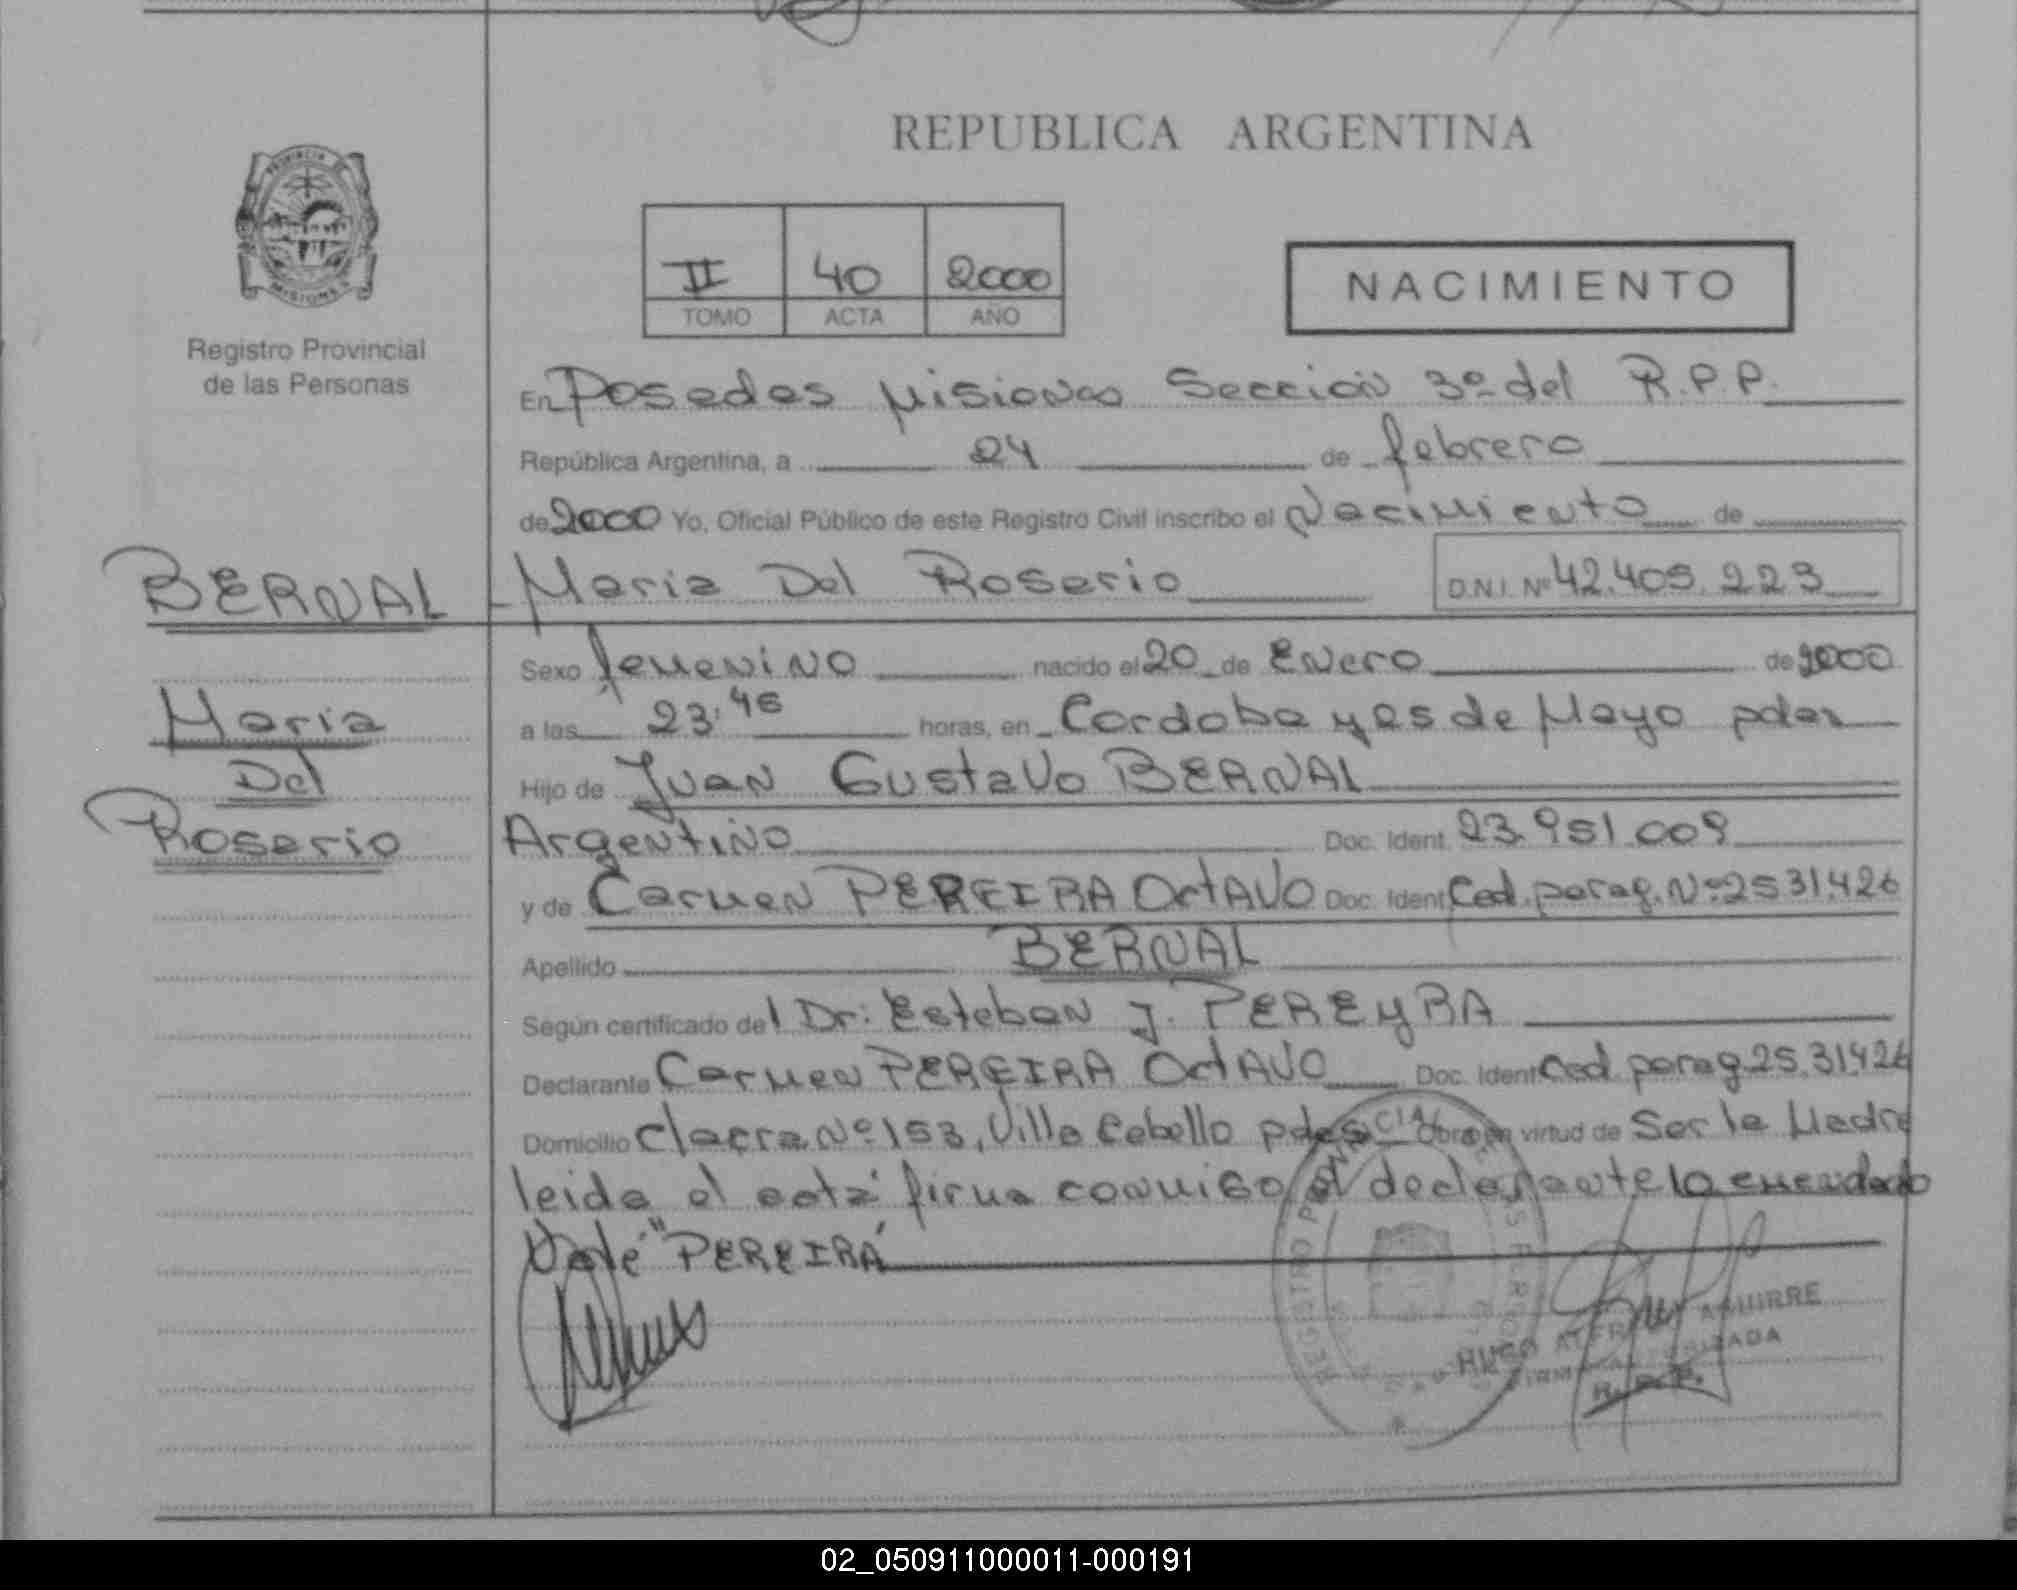 REPUBLICA ARGENTINA
PROVINCIA DE
MISIONES
Registro Provincial
de las Personas
II 40 2000
TOMO ACTA AÑO
NACIMIENTO
En Posadas Misiones Sección 3º del R.P.P.
República Argentina, a 24 de febrero
de 2000 Yo, Oficial Público de este Registro Civil inscribo el Nacimiento de
BERNAL
Maria Del Rosario D.N.I. Nº 42.405.223
Maria
Del
Rosario
Sexo femenino nacido el 20 de Enero de 2000
a las 23:46 horas, en Cordoba y 25 de Mayo pdas
Hijo de Juan Gustavo BERNAL
Argentino Doc. Ident. 23.951.009
y de Carmen PEREIRA OctAVO Doc. Ident. Ced. parag. Nº 2531.426
Apellido BERNAL
Según certificado del Dr: Esteban J. PEREYRA
Declarante Carmen PEREIRA OctAVO Doc. Ident. Ced parag 25.31.426
Domicilio Chacra Nº 153, Villa Cabello pdas Obra en virtud de Ser la Madre
leida el acta firma conmigo el declarante lo enmendado
Vale "PEREIRA"
REGISTRO PROVINCIAL DE LAS PERSONAS
HUGO ALFREDO AGUIRRE
FIRMA AUTORIZADA
R. P. P.
02_050911000011-000191